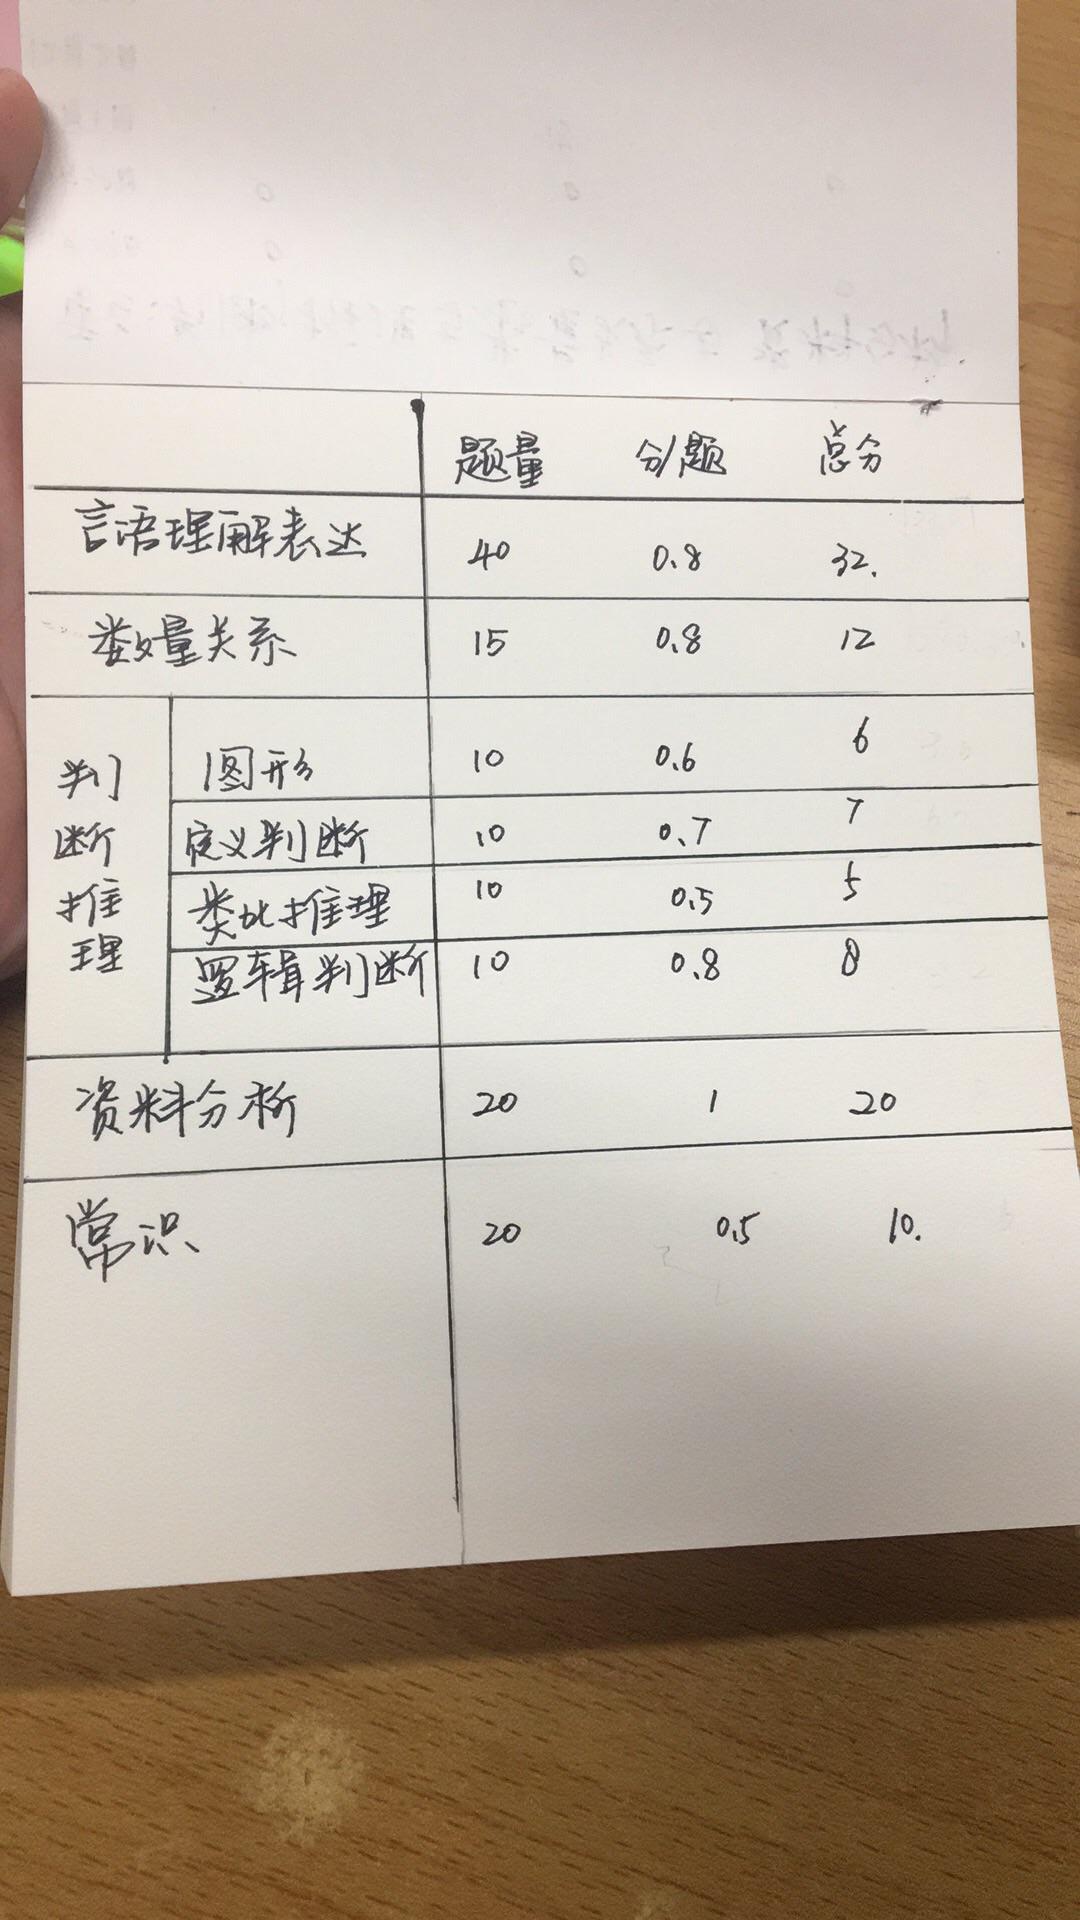 题量 分/题 总分
言语理解表达 40 0.8 32.
数量关系 15 0.8 12
判断推理
图形 10 0.6 6
定义判断 10 0.7 7
类比推理 10 0.5 5
逻辑判断 10 0.8 8
资料分析 20 1 20
常识 20 0.5 10.